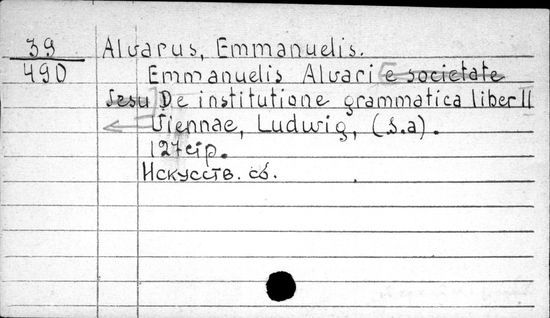 39 Alvarus, Emmanuelis.
490 Emmanuelis Alvari e societate
Jesu De institutione grammatica liber II
Viennae, Ludwig, (s.a).
127 с��р.
Искусств. сб.